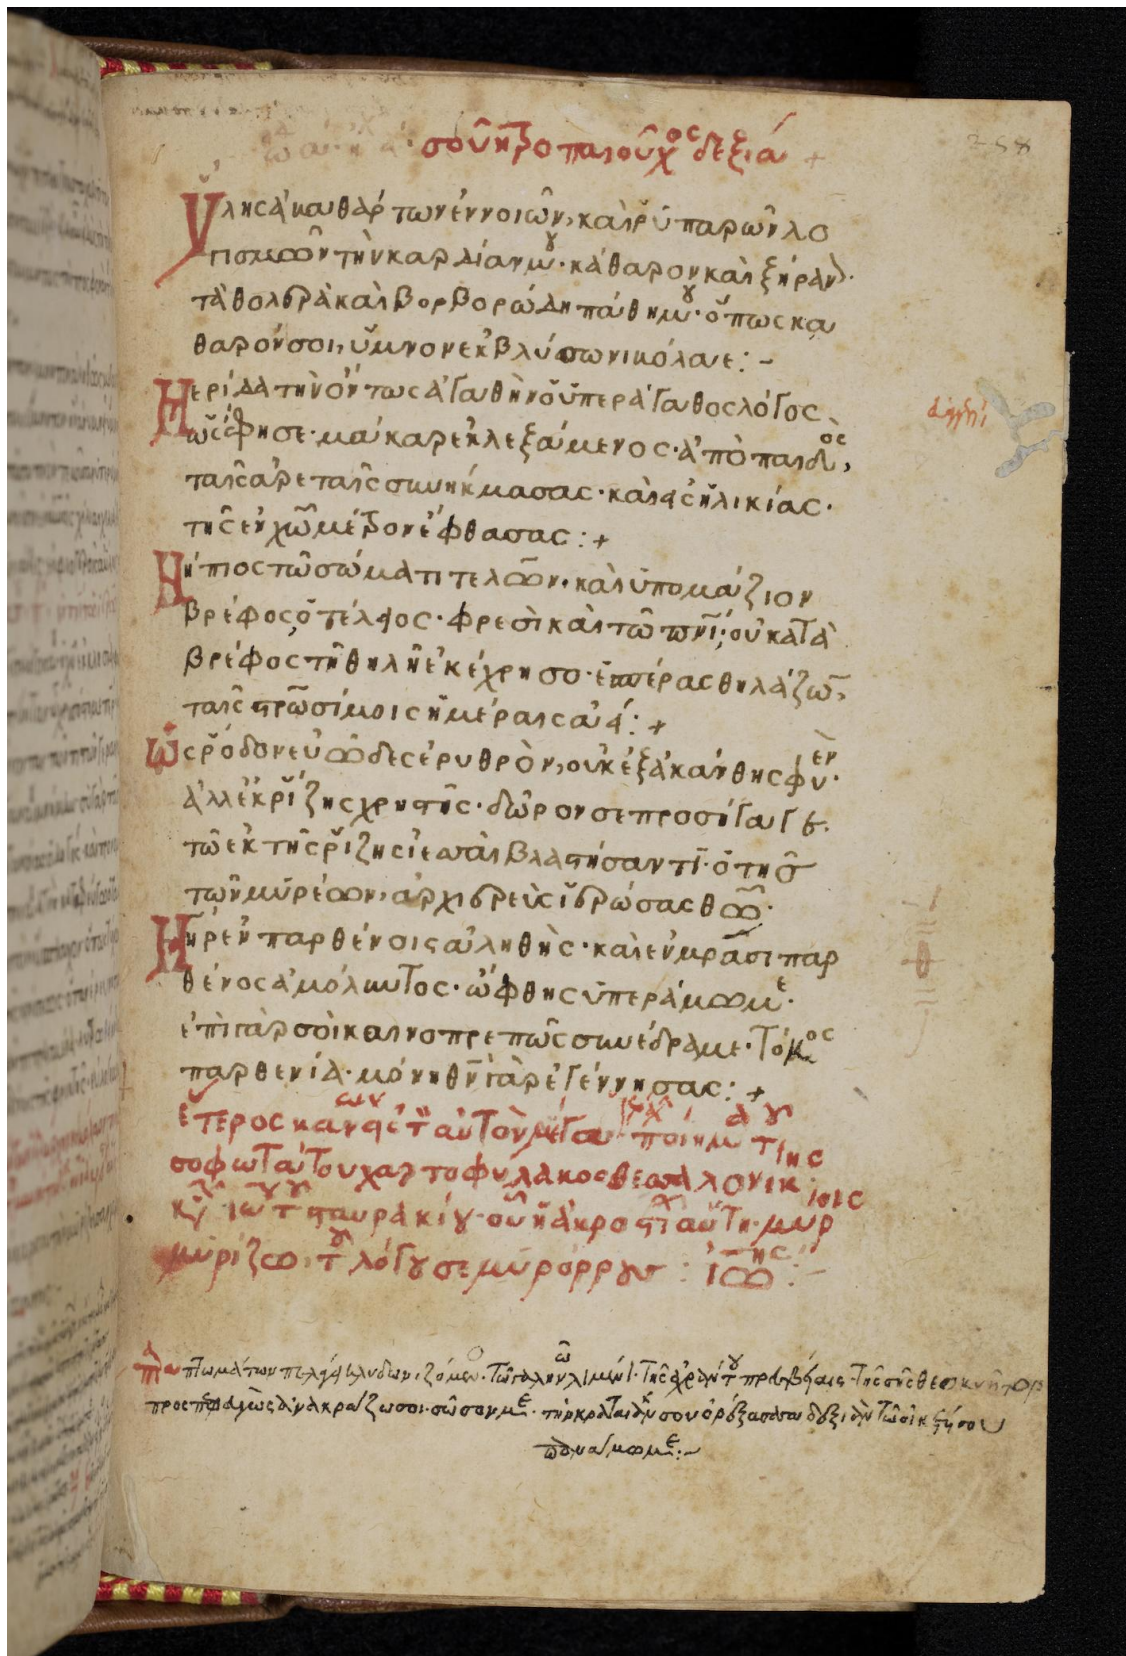 σοῦ ἡ τροπαιοῦχος δεξιά +
Ὕλης ἀκαθάρτων ἐννοιῶν, καὶ ῥυπαρῶν λο
γισμῶν τὴν καρδίαν μου· κάθαρον καὶ ξήραν·
τὰ θολερὰ καὶ βορβορώδη πάθη μου· ὅπως κα
θαρόν σοι, ὕμνον ἐκβλύσω νικόλαε: –
Μερίδα τὴν ὄντως ἀγαθὴν οὗ ὑπεράγαθος λόγος
ὡς ἔφησε· μάκαρ ἐκλεξάμενος· ἀπὸ παιδὸς,
ταῖς ἀρεταῖς συνήκμασας· καὶ τῆς ἡλικίας·
τῆς ἐν χῶ μέτρον ἔφθασας: +
Νήπιος τῶ σώματι τελῶν· καὶ ὑπομάζιον
βρέφος, ὁ τέλειος· φρεσὶ καὶ τῶ πνι, οὐ κατὰ
βρέφος τῆ θηλῆ ἐκέχρησο· ἑσπέρας θηλάζων,
ταῖς νησίμοις ἡμέραις ἀεί: +
Ὡς ῥόδον εὐῶδες ἐρυθρὸν, οὐκ ἐξ ἀκάνθης φυέν·
ἀλλ' ἐκ ῥίζης χρηστῆς· δῶρον σε προσήγαγε
τῶ ἐκ τῆς ῥίζης ἰεσσαὶ βλαστήσαντι· ὁ τῆς
τῶν μυρέων, ἀρχιερεὺς ἱερώσας θῶ·
Μῆρ ἐν παρθένοις ἀληθὴς· καὶ ἐν μράσι παρ
θένος ἀμόλυντος· ὤφθης ὑπεράμωμε·
ἐπὶ γὰρ σοὶ καινοπρεπῶς συνέδραμε· τόκος
παρθενία· μόνη θν γὰρ ἐγέννησας: +
ἕτερος κανὼν εἰς τὸν αὐτὸν μέγαν ποίημα τῆς
σοφωτάτου χαρτοφύλακος θεσσαλονίκης
κυ ιω τοῦ σταυρακίου· οὗ ἡ ἀκροστιχὶς αὕτη· μύρ
μυρίζω τοῦ λόγου σε μυρόρρου: ἰω:
πταισμάτων πελάγει κλυδωνιζόμενον· τῶ γαληνῶ λιμένι· τῆς ἀχράντου πρεσβείας· τῆς σῆς θεοκυῆτορ
προσπεφευγὼς ἀνακράζω σοι· σῶσον με· τὴν κραταιάν σου ὀρέξασα δεξιὰν τῶ οἰκέτη σου
πανάμωμε: –